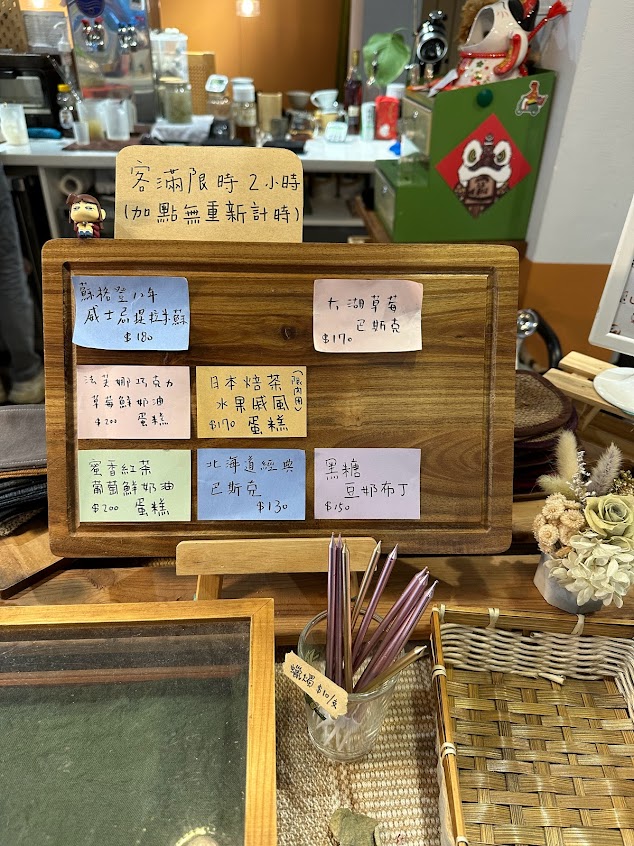 客滿限時2小時
(加點無重新計時)
蘇格登八年
威士忌提拉米蘇
$180
大湖草莓
巴斯克
$170
法芙娜巧克力
草莓鮮奶油
$200 蛋糕
日本焙茶
(限內用)
水果戚風
$170 蛋糕
蜜香紅茶
葡萄鮮奶油
$200 蛋糕
北海道經典
巴斯克
$130
黑糖
豆奶布丁
$150
蠟燭$10/支